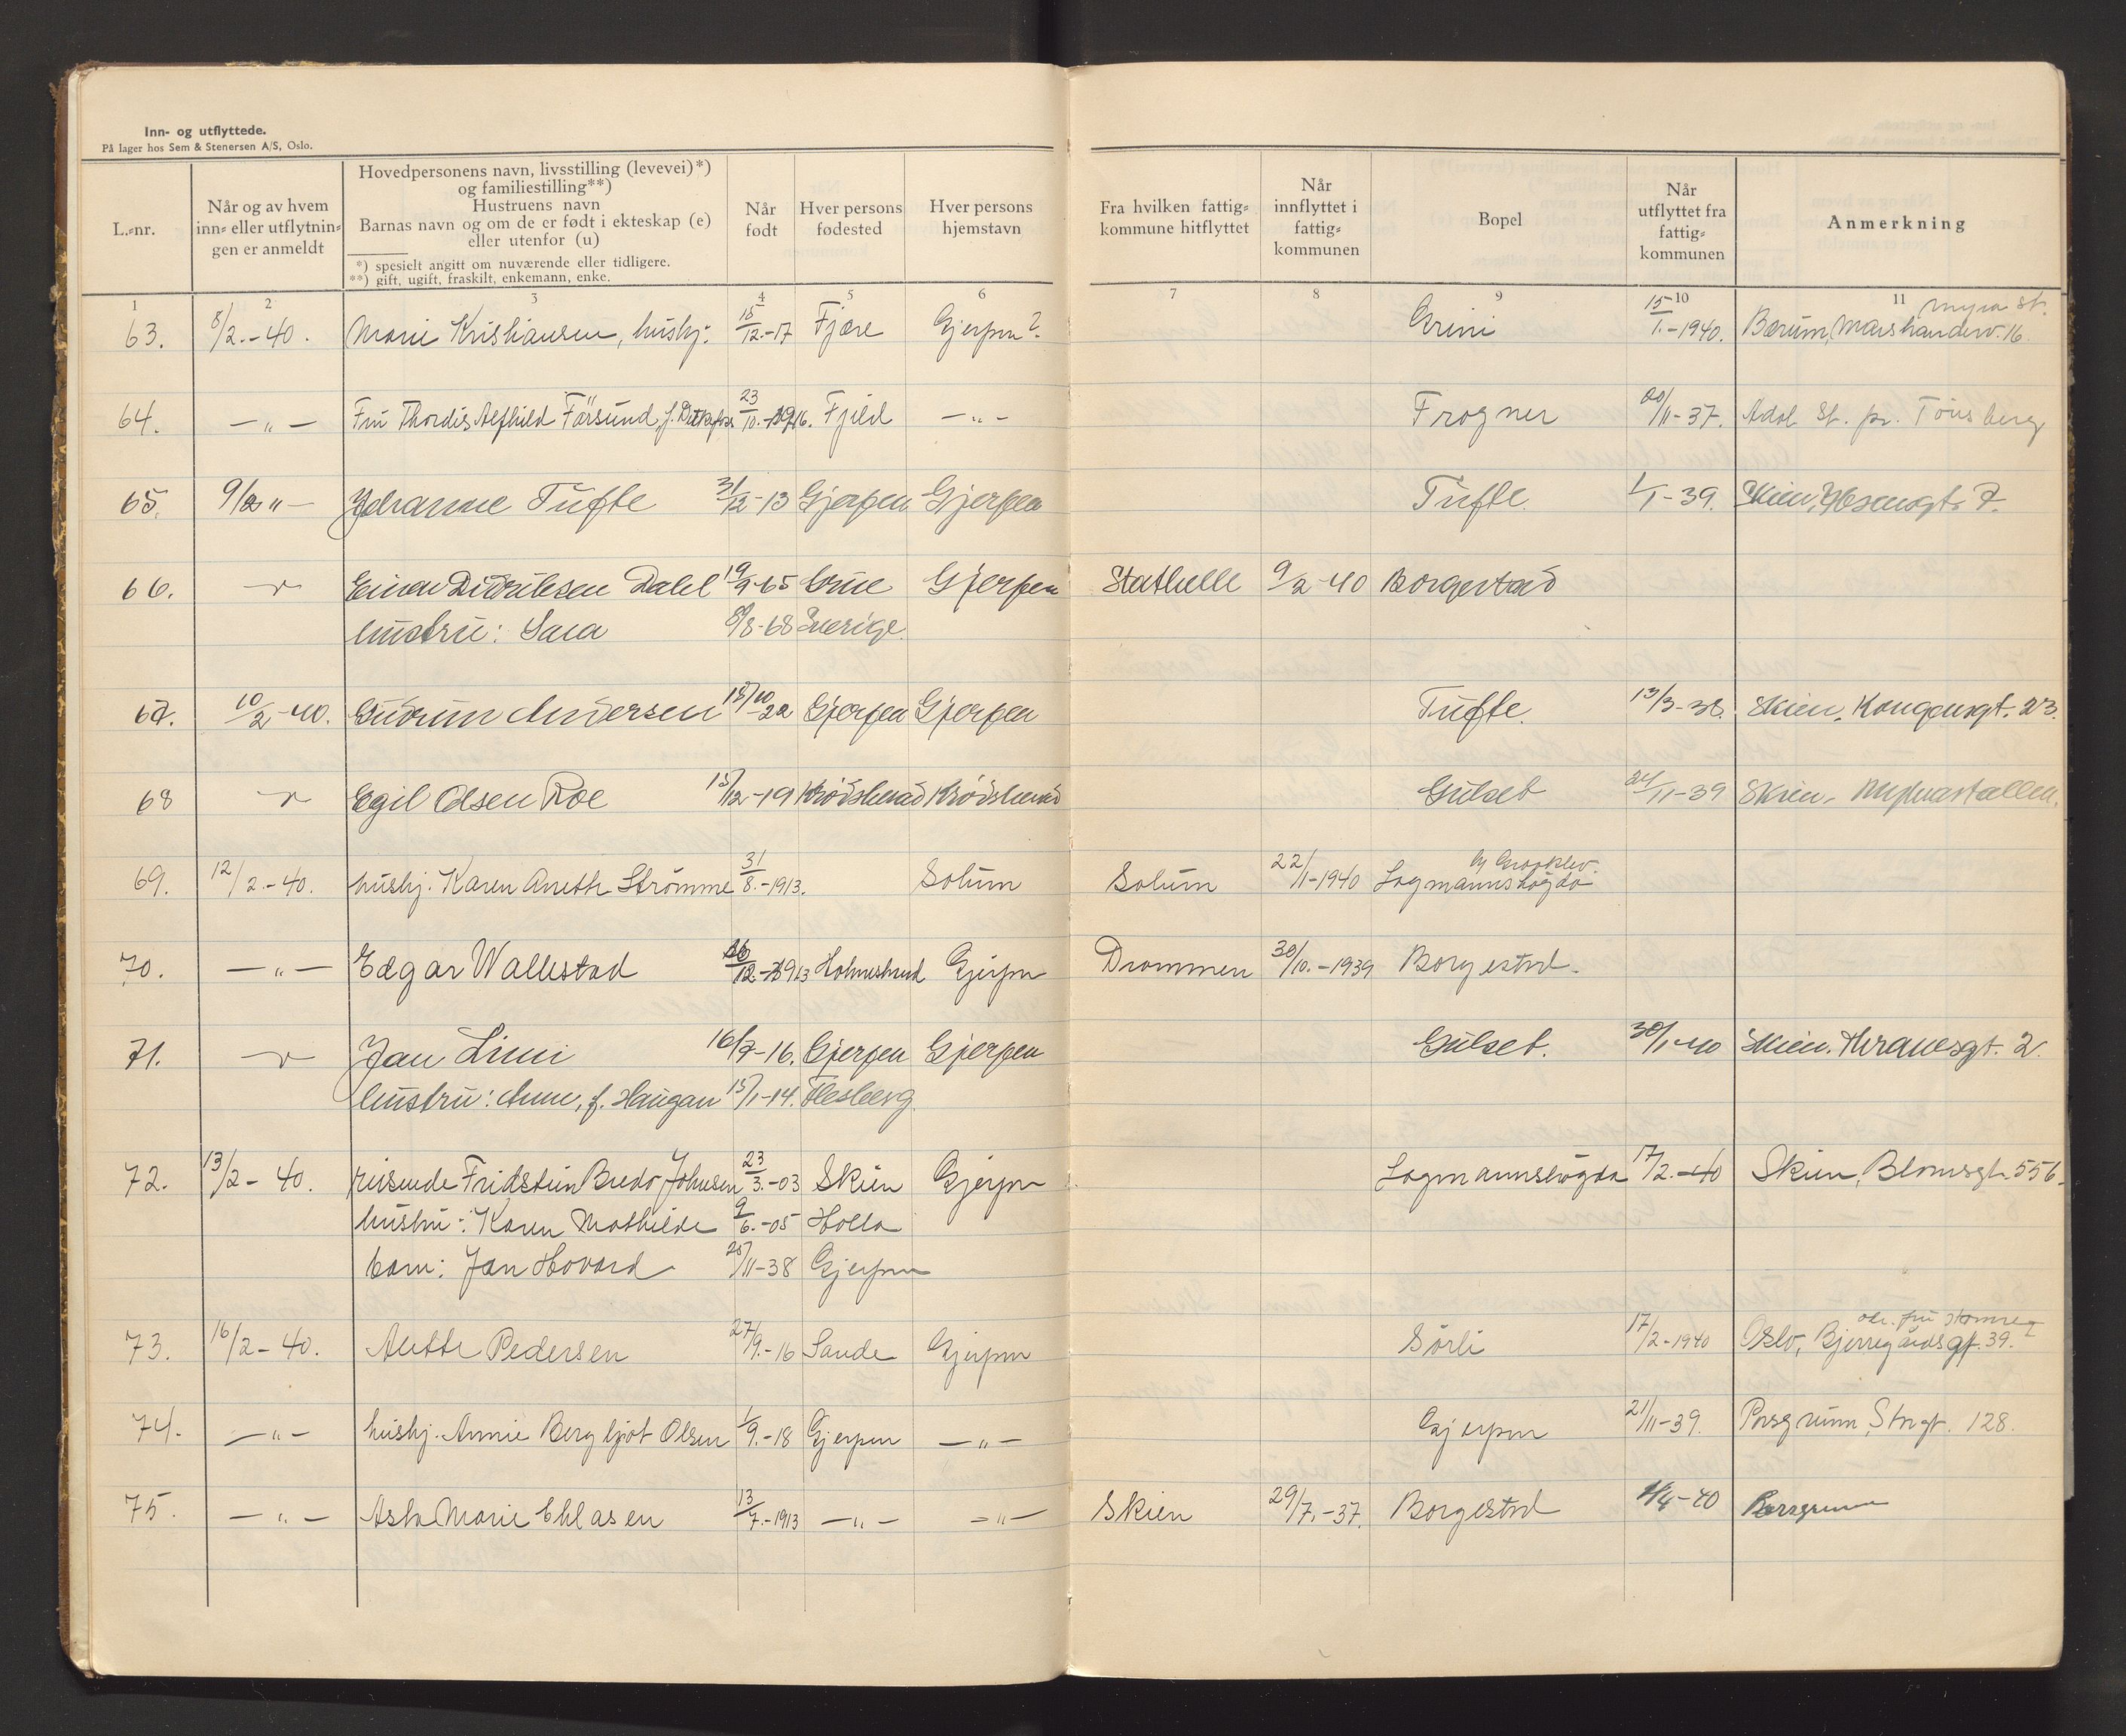 Inn- og utflyttede.
På lager hos Sem & Stenersen A/S, Oslo.
L.-nr.
Når og av hvem inn- eller utflytningen er anmeldt
Hovedpersonens navn, livsstilling (levevei)*)
og familiestilling**)
Hustruens navn
Barnas navn og om de er født i ekteskap (e)
eller utenfor (u)
*) spesielt angitt om nuværende eller tidligere.
**) gift, ugift, fraskilt, enkemann, enke.
Når født
Hver persons fødested
Hver persons hjemstavn
Fra hvilken fattig-kommune hitflyttet
Når innflyttet i fattig-kommunen
Bopel
Når utflyttet fra fattig-kommunen
Anmerkning
1 2 3 4 5 6 7 8 9 10 11
63. 8/2.-40. Marie Kristiansen, hushj. 18/12.-17 Fjære Gjerpen? Grini 15/1.-1940. Bærum, 16.
64. -"- Fru Thordis Alfhild Försund, f. 23/10.-1916. Fjeld -"- Frogner 20/11-37. Adal St. pr. Tönsberg
65. 9/2 "- Johanne Tufte 31/12-13 Gjerpen Gjerpen Tufte. 1/1-39. Skien, Ibsensgt. 7.
66. Einar Didriksen Dahl 19/9-65 Gjerpen Stathelle 9/2-40 Borgestad
hustru: Sara /8-68 Sverige.
67. 10/2-40. Gudrun Andersen 15/10-22 Gjerpen Gjerpen Tufte. 13/3-38. Skien, Kongensgt. 23.
68 Egil Olsen Roe 15/12-19 Krödsherad Krödsherad Gulset 24/11-39 Skien,
69. 12/2.-40. hushj. Karen Anette Strömme 31/8.-1913. Solum Solum 22/1-1940 Lagmannshögda
70. -"- Edgar Wallestad 26/12.-1913 Holmestrand Gjerpen Drammen 30/10.-1939 Borgestad.
71. Jan Limi 16/7-16. Gjerpen Gjerpen Gulset. 30/1-40 Skien. Thranesgt. 2.
hustru: Anne, f. Haugan 15/1-14. Flesberg.
72. 13/2-40. reisende Fridstein Bredo Johnsen 23/3.-03 Skien Gjerpen Lagmannshögda 17/2.-40 Skien, Blomsgt. 556.
hustru: Karen Mathilde 9/6.-05 Holla
barn: Jan Hovard 25/11-38 Gjerpen
73. 16/2-40. Alette Pedersen 27/9.-16 Sande Gjerpen Sörli 17/2-1940 Oslo, Bjerregårdsgt. 39.
74. -"- hushj. Annie Bergljot Olsen 1/9.-18 Gjerpen -"- Gjerpen 21/11-39. Porsgrunn, Storgt. 128.
75. -"- Asta Marie Eklasen 13/7.-1913 -"- -"- Skien 29/7.-37. Borgestad 1/4-40 Porsgrunn